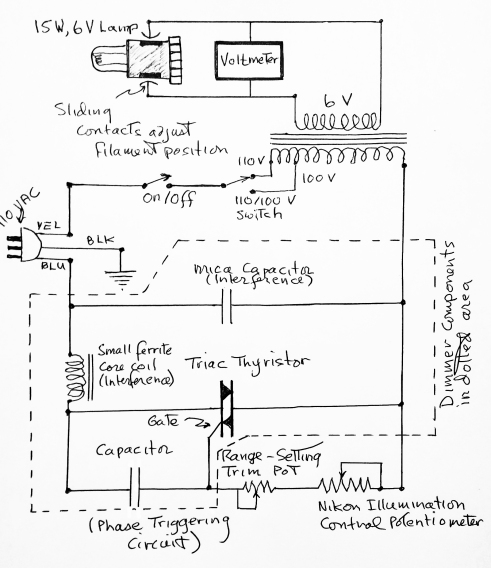 15W, 6V Lamp
Voltmeter
6 V
Sliding
contacts adjust
filament position
110V
100V
On/Off
110/100 V
Switch
110 VAC
YEL
BLK
BLU
mica Capacitor
(Interference)
Dimmer Components
in dotted area
Small ferrite
core coil
(Interference)
Triac Thyristor
Gate
Capacitor
Range-Setting
Trim PoT
(Phase Triggering
Circuit)
Nikon Illumination
Control Potentiometer